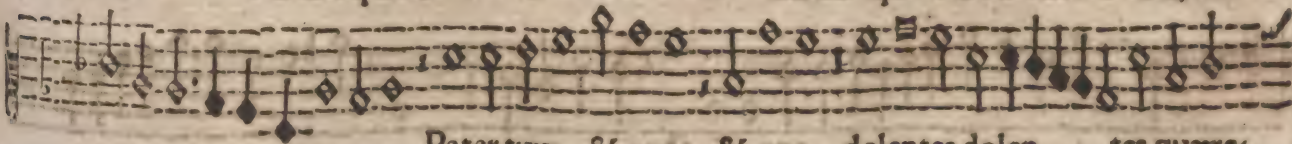 Pater tuus & ego & ego dolentes dolen tes quærę